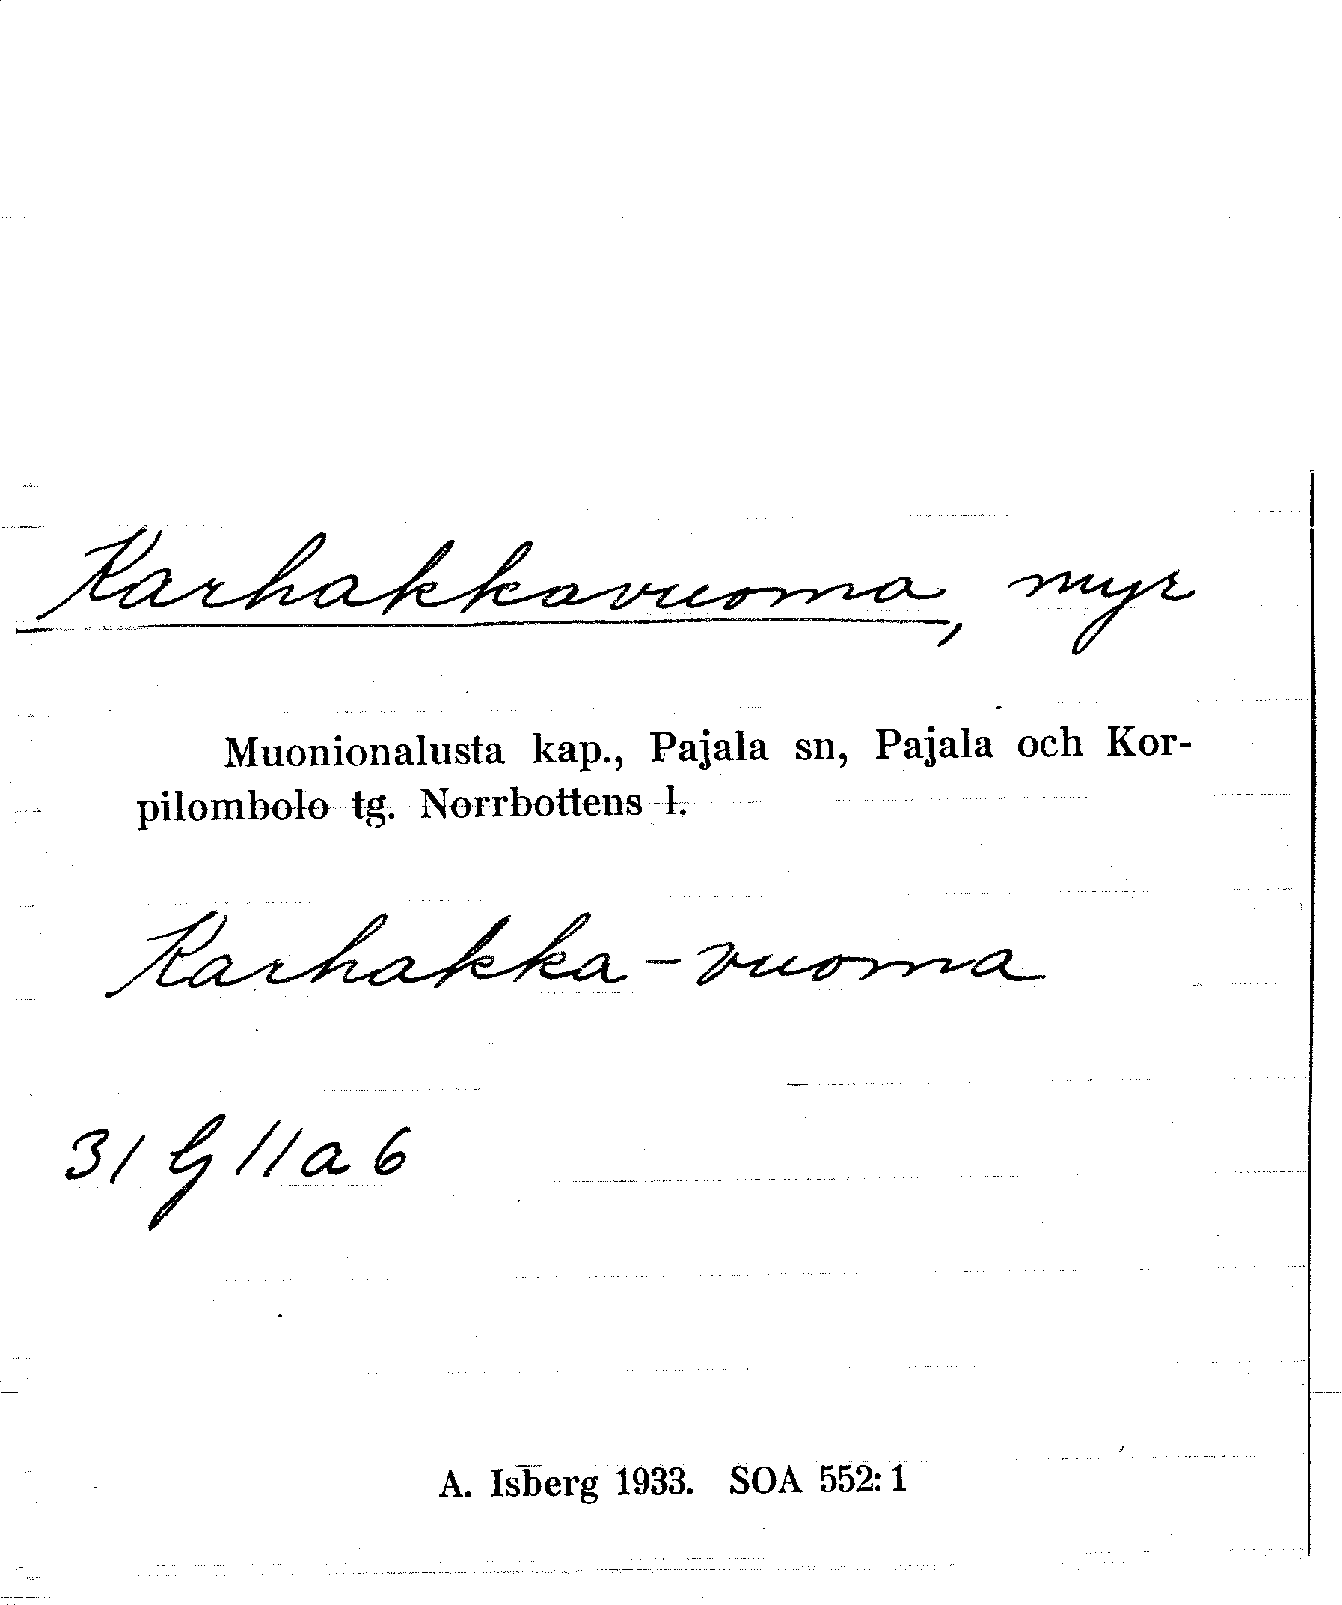 Karhakkavuoma, myr
Muonionalusta kap., Pajala sn, Pajala och Kor-
pilombolo tg. Norrbottens l.
Karhakka-vuoma
31 G 11 a 6
A. Isberg 1933. SOA 552:1